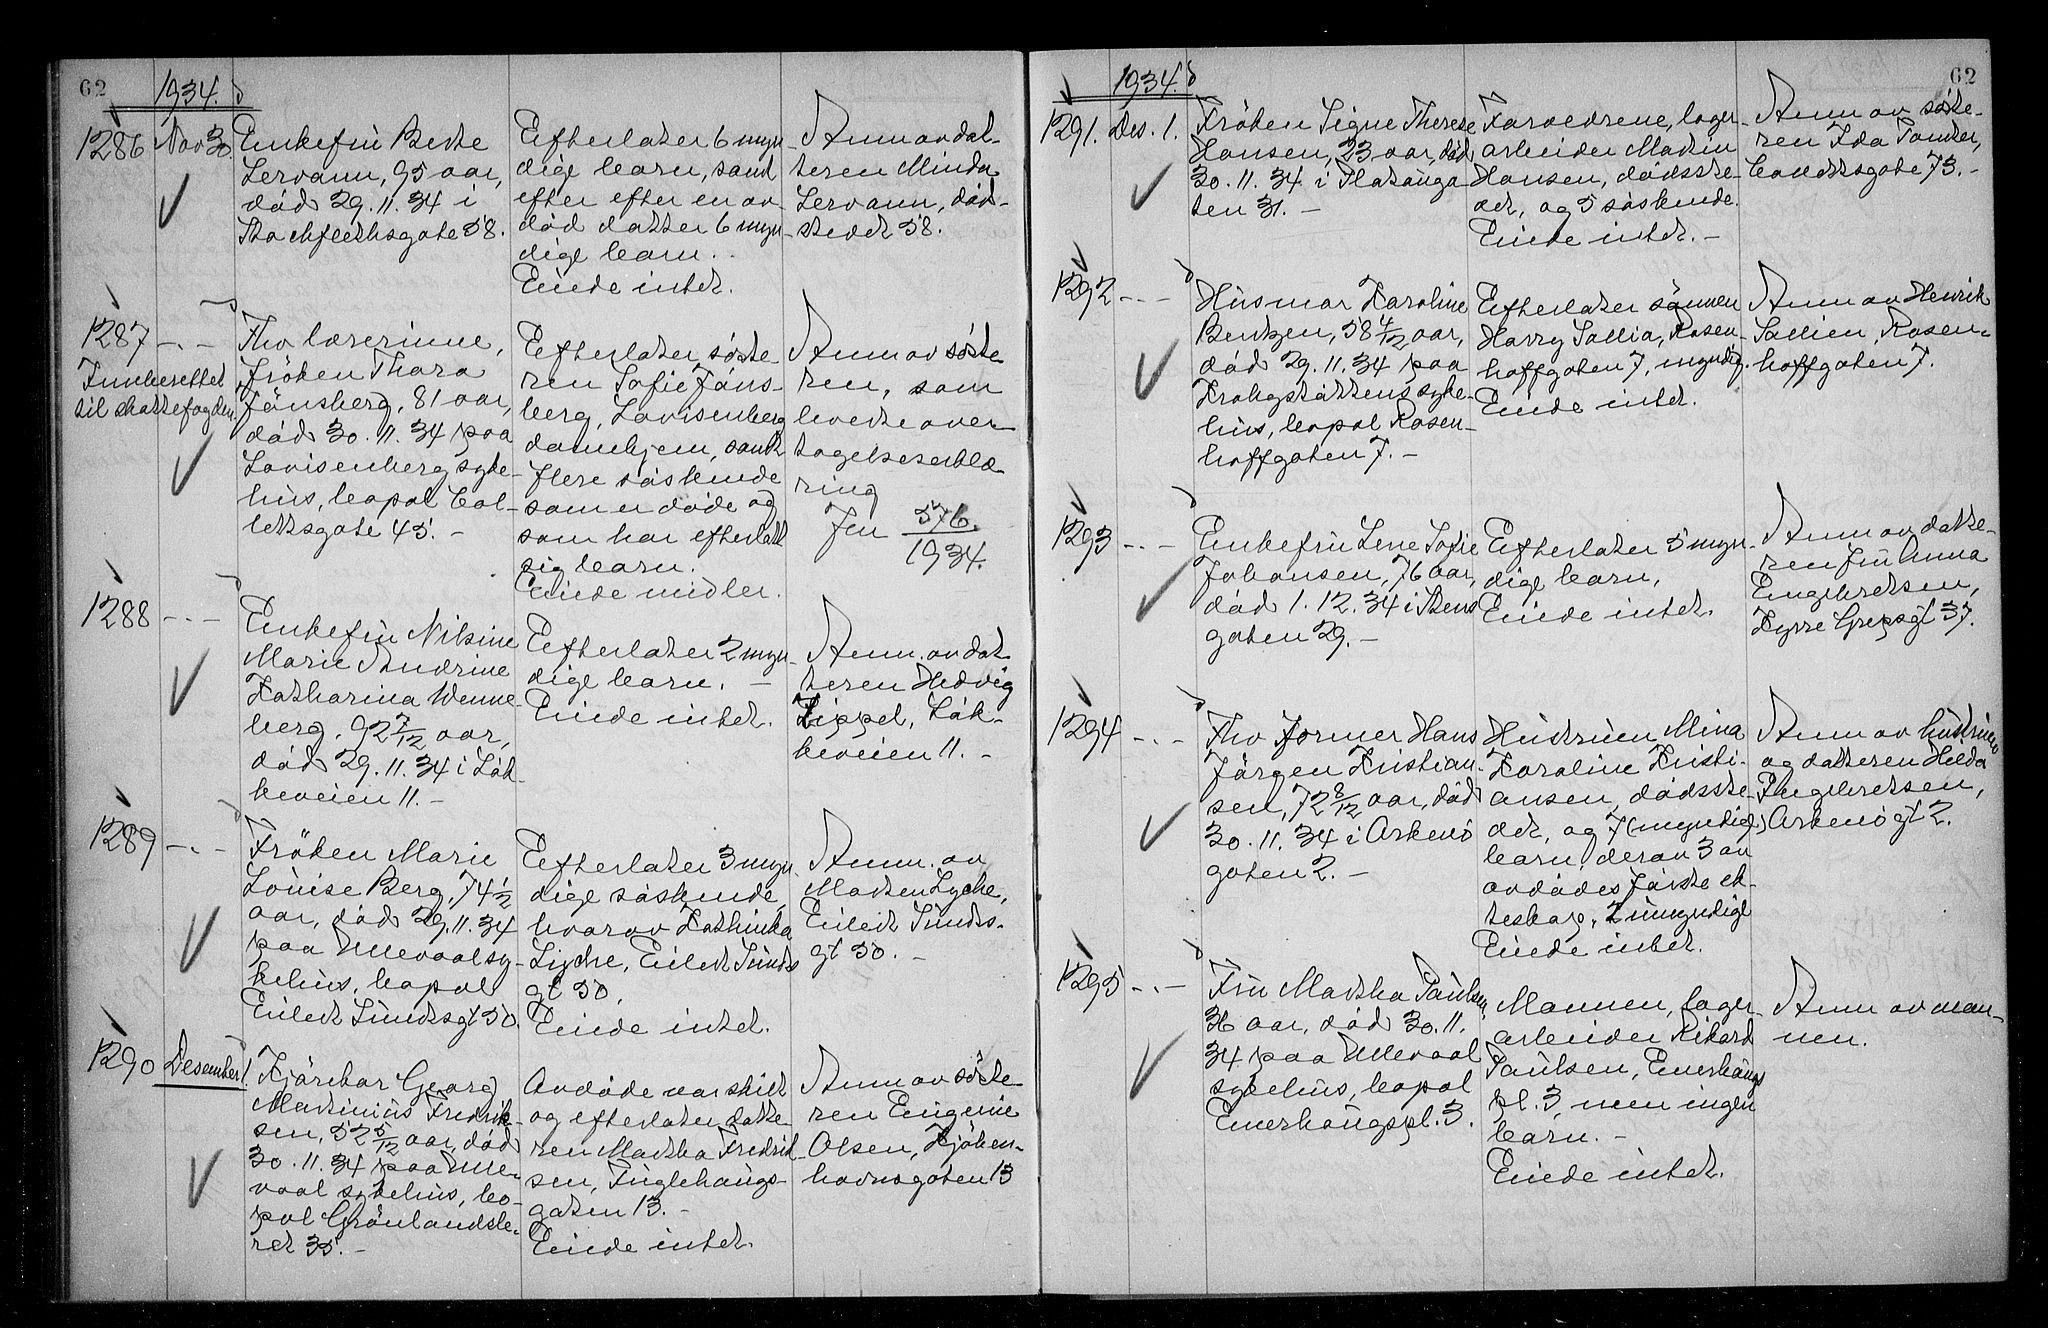 62
1934.
1286 Nov 30.
Enkefru Berte
Lervann, 95 aar,
död 29.11.34 i
Stockflethsgate 58.
Efterlater 6 myn-
dige barn, samt
efter en av-
död datter 6 myn-
dige barn.
Eiede intet.
Anm av dat-
teren Minda
Lervann, död-
stedet 58.
1287 -.-
Innberettet
til skattefogden.
Fhv lærerinne,
fröken Thora
Jönsberg, 81 aar,
död 30.11.34 paa
Lovisenberg syke-
hus, bopel Col-
lettsgate 45. -
Efterlater söste-
ren Sofie Jöns-
berg, Lovisenberg
damehjem, samt
flere söskende
som er döde og
som har efterlatt
sig barn.
Eiede midler.
Anm av söste-
ren, som
hvedte over-
tagelseserklæ-
ring
Jnr 576
1934.
1288 -.-
Enkefru Nilsine
Marie Andrine
Katharina Wenne-
berg, 92 7/12 aar,
död 29.11.34 i Lök-
keveien 11. -
Efterlater 2 myn-
dige barn. -
Eiede intet.
Anm. av dat
teren Hedvig
Lippel, Lök-
keveien 11. -
1289 -.-
Fröken Marie
Louise Berg, 74 1/2
aar, död 29.11.34
paa Ullevaal sy-
kehus, bopel
Eilert Sundtsgt 50.
Efterlater 3 myn
dige söskende,
hvorav Kathinka
Lyche, Eilert Sundts
gt 50.
Eiede intet.
Anm. av
Morten Lyche,
Eilert Sundts-
gt 50. -
1290 Desember 1.
Kjörekar Georg
Martinius Fredrik-
sen, 52 5/12 aar, död
30.11.34 paa Ulle-
vaal sykehus, bo-
pel Grönlandsle-
ret 35. -
Avdöde var skilt
og efterlater datte-
ren Martha Fredrik-
sen, Fuglehaugs-
gaten 13. -
Eiede intet.
Anm av söste
ren Eugenie
Olsen, Kjöben-
havnsgaten 13
1934.
62
1291. Des. 1.
Fröken Signe Therese
Hansen, 23 aar, död
30.11.34 i Platouga-
ten 31. -
Forældrene, lager-
arbeider Martin
Hansen, dödsste-
det, og 5 söskende.
Eiede intet. -
Anm av söste-
ren Ida
Collettsgate 73. -
1292 -.-
Husmor Karoline
Bentzen, 58 4/12 aar,
död 29.11.34 paa
Krohgstöttens syke-
hus, bopel Rosen-
hoffgaten 7. -
Efterlater sönnen
Harry Sallia, Rosen-
hoffgaten 7, myndig.
Eiede intet.
Anm av Henrik
Sallien, Rosen-
hoffgaten 7.
1293 -.-
Enkefru Lene Sofie
Johansen, 76 aar,
död 1.12.34 i Stens
gaten 29. -
Efterlater 5 myn-
dige barn,
Eiede intet.
Anm av datte-
ren fru Anna
Engebretsen,
Kyrre Grepsgt 37.
1294 -.-
Fhv former Hans
Jörgen Kristian-
sen, 72 8/12 aar, död
30.11.34 i Askerö
gaten 2. -
Hustruen Mina
Karoline Kristi-
ansen, dödsste-
det, og 7 (myndige)
barn derav 3 av
avdödes förste ek-
teskap, 2 umyndige
Eiede intet.
Anm av hustruen
og datteren Hilda
Engebretsen,
Askerö gt 2.
1295 -.-
Fru Martha Paulsen,
36 aar, död 30.11.
34 paa Ullevaal
sykehus, bopel
Enerhaugspl. 3.
Mannen, lager
arbeider Rikard
Paulsen, Enerhaugs
pl. 3, men ingen
barn. -
Eiede intet.
Anm av man-
nen.